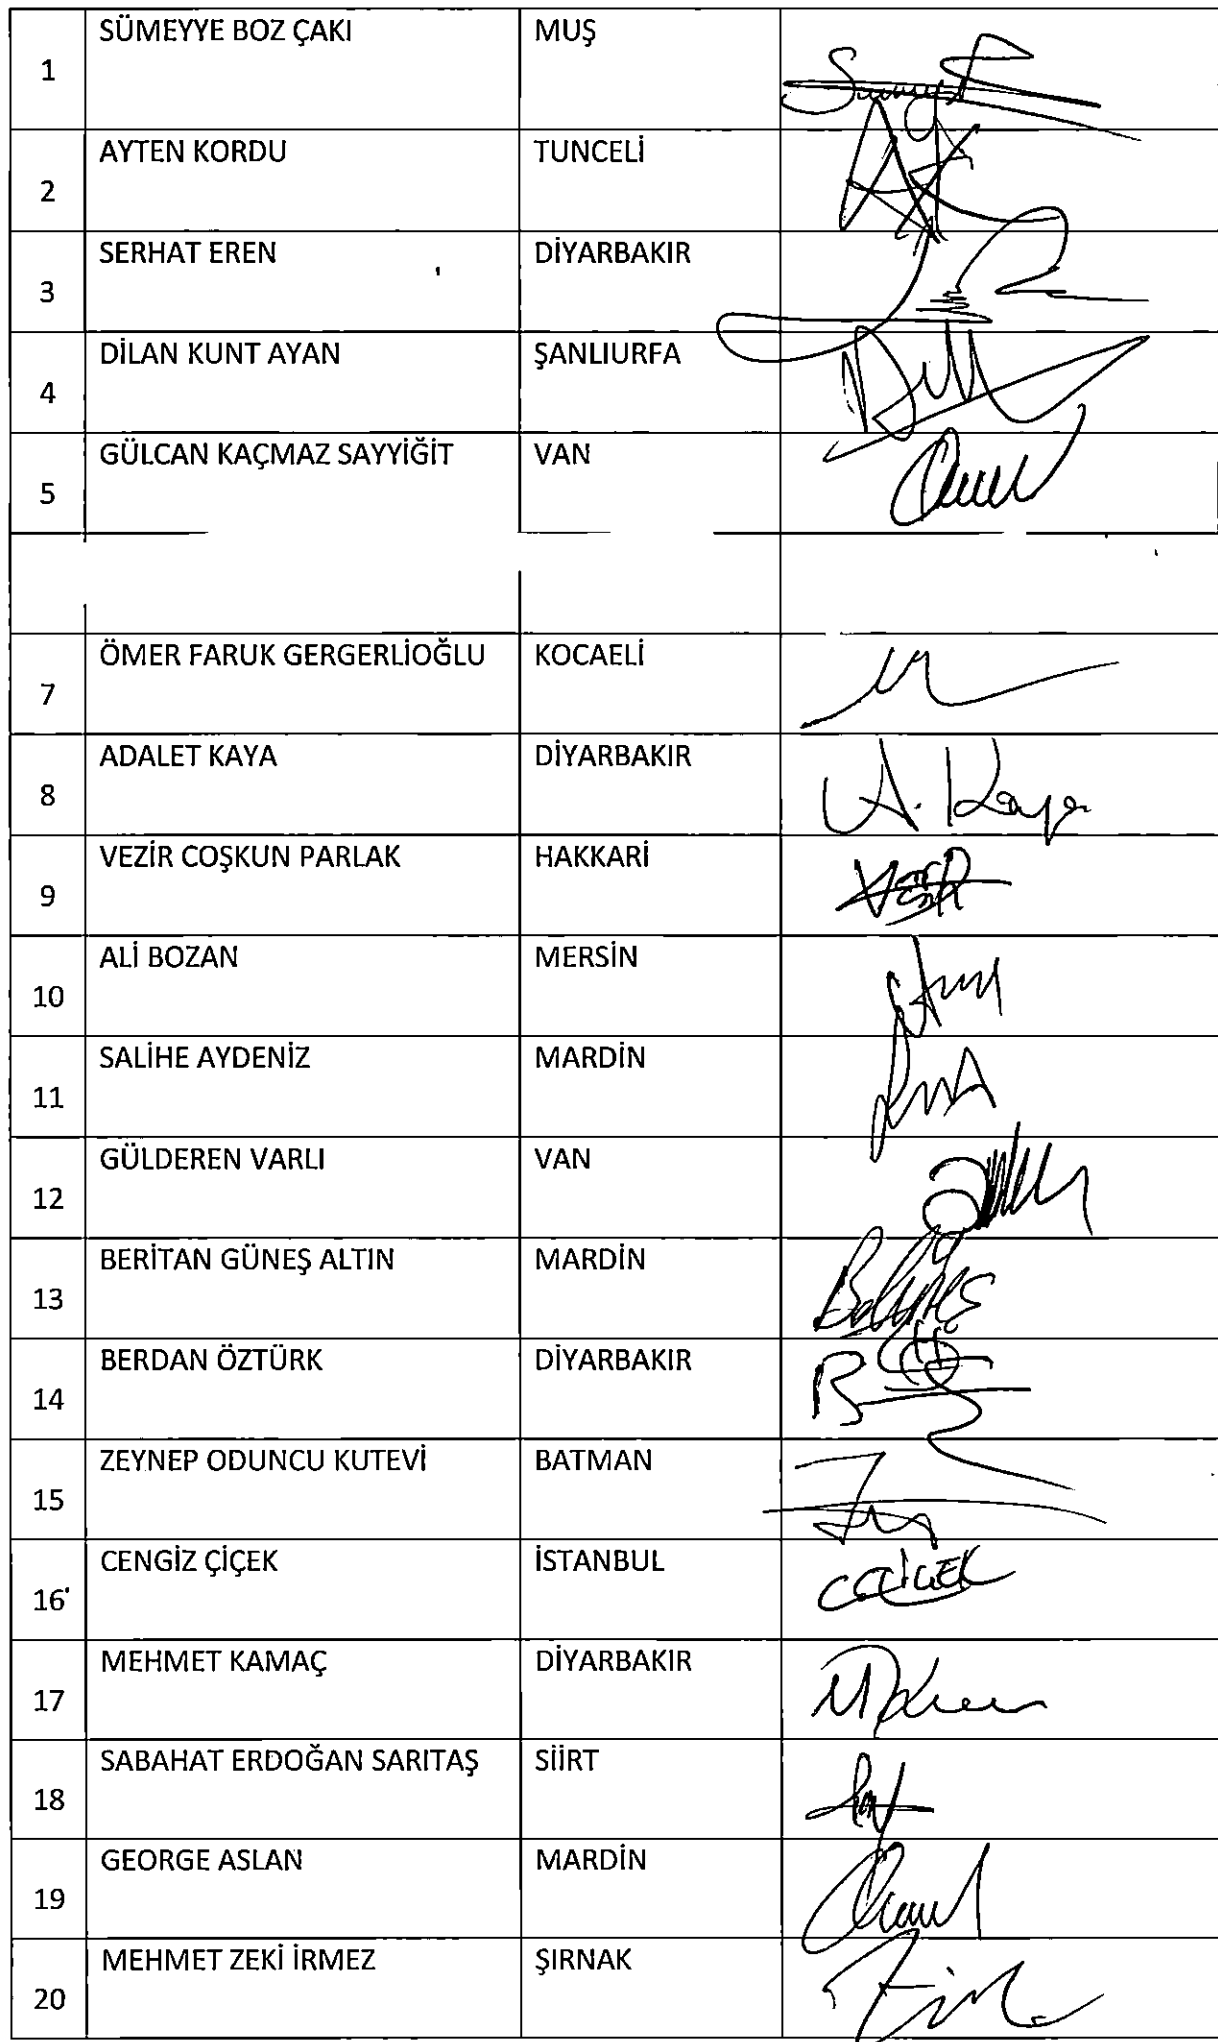 1 SÜMEYYE BOZ ÇAKI MUŞ
2 AYTEN KORDU TUNCELİ
3 SERHAT EREN DİYARBAKIR
4 DİLAN KUNT AYAN ŞANLIURFA
5 GÜLCAN KAÇMAZ SAYYİĞİT VAN
7 ÖMER FARUK GERGERLİOĞLU KOCAELİ
8 ADALET KAYA DİYARBAKIR A. Kaya
9 VEZİR COŞKUN PARLAK HAKKARİ
10 ALİ BOZAN MERSİN
11 SALİHE AYDENİZ MARDİN
12 GÜLDEREN VARLI VAN
13 BERİTAN GÜNEŞ ALTIN MARDİN
14 BERDAN ÖZTÜRK DİYARBAKIR
15 ZEYNEP ODUNCU KUTEVİ BATMAN
16 CENGİZ ÇİÇEK İSTANBUL
17 MEHMET KAMAÇ DİYARBAKIR
18 SABAHAT ERDOĞAN SARITAŞ SİİRT
19 GEORGE ASLAN MARDİN
20 MEHMET ZEKİ İRMEZ ŞIRNAK